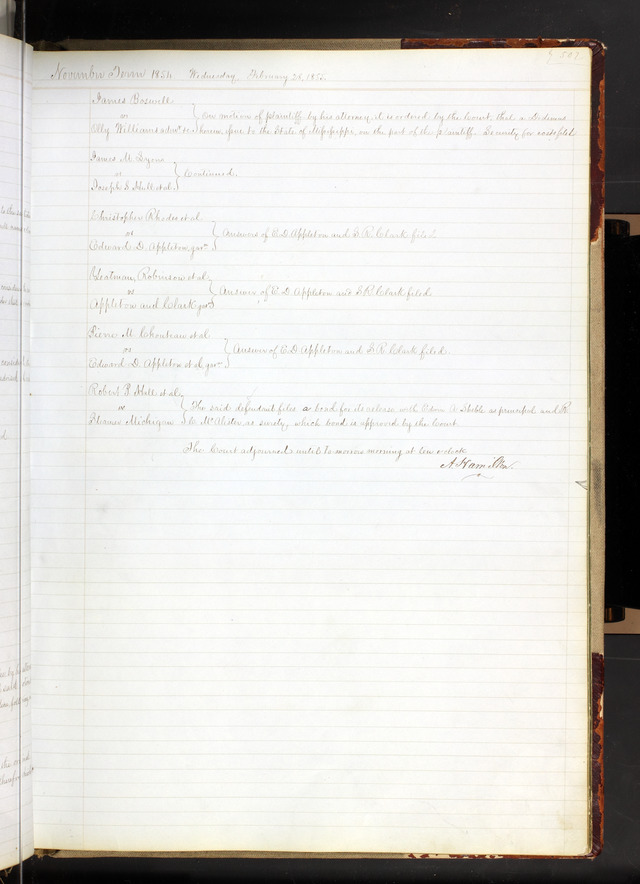 507
November Term 1854 Wednesday, February 28, 1855.
James Boswell
vs } On motion of plaintiff by his attorney it is ordered by the Court that a Dedimus
Olly Williams admr to homine issue to the State of Mississippi on the part of the plaintiff. Security for costs filed
James M. Lyons
vs } Continued.
Joseph S. Hull et al.
Christopher Rhodes et al
vs } Answers of E. D. Appleton and S. R. Clark filed.
Edward D. Appleton gar.
Yeatman, Robinson et al
vs } Answer of E. D. Appleton and S. R. Clark filed
Appleton and Clark gar
Pierre M. Chouteau et al
vs } Answer of E. D. Appleton and S. R. Clark filed.
Edward D. Appleton et al gar.
Robert P. Hall et al
vs } The said defendant files a bond for its release with as principal and R.
Steamer Michigan C. McAlister as surety, which bond is approved by the Court
The Court adjourned until tomorrow morning at ten o'clock
A. Hamilton.